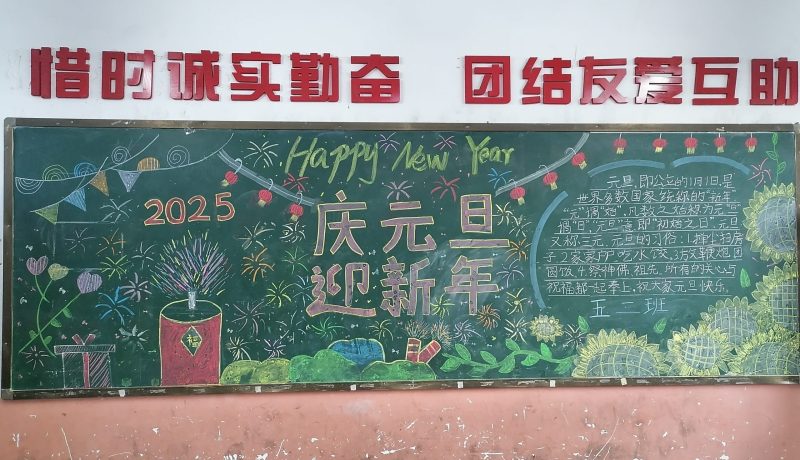 惜时诚实勤奋 团结友爱互助
Happy New Year
2025
庆元旦
迎新年
福
元旦,即公立的1月1日,是
世界多数国家统称的"新年"
"元"谓"始",凡数之始称为"元";
谓"日";"元旦"意即"初始之日",元旦
又称三元,元旦的习俗:1.掸尘扫房
子 2.家家户户吃水饺,3.放鞭炮团
圆饭,4.祭神佛,祖先,所有的关心与
祝福都一起奉上,祝大家元旦快乐。
五二班